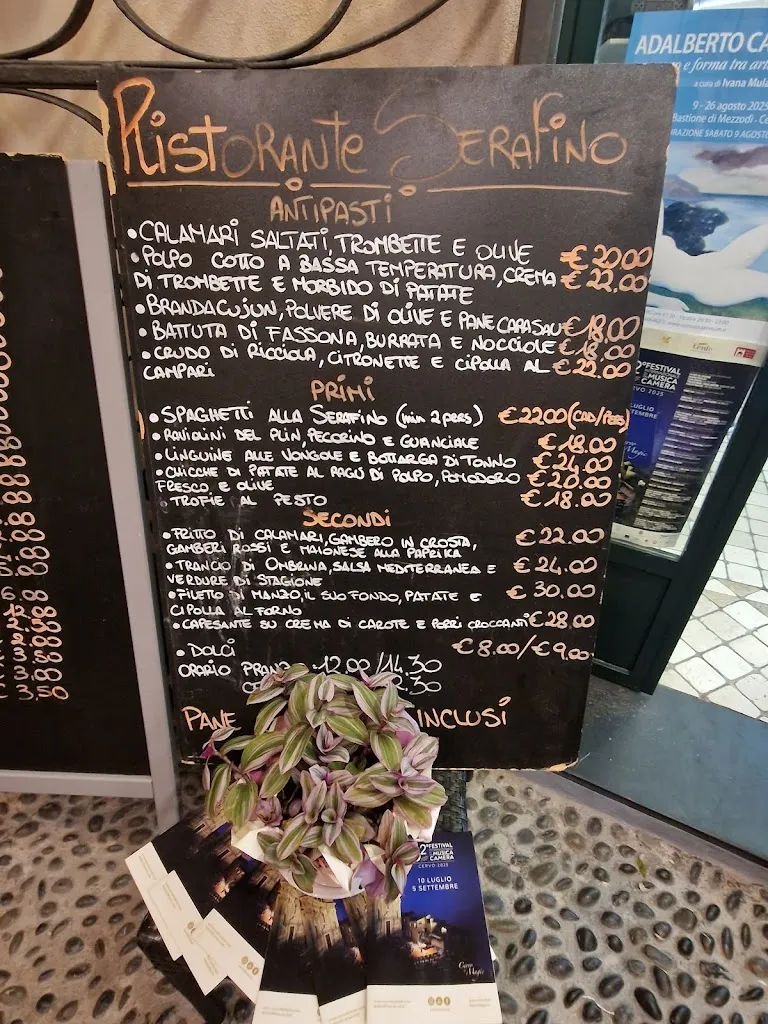 RISTORANTE SERAFINO
ANTIPASTI
• CALAMARI SALTATI, TROMBETTE E OLIVE € 20.00
• POLPO COTTO A BASSA TEMPERATURA, CREMA € 22.00
DI TROMBETTE E MORBIDO DI PATATE
• BRANDACUJUN, POLVERE DI OLIVE E PANE CARASAU € 18.00
• BATTUTA DI FASSONA, BURRATA E NOCCIOLE € 18.00
• CRUDO DI RICCIOLA, CITRONETTE E CIPOLLA AL € 22.00
CAMPARI
PRIMI
• SPAGHETTI ALLA SERAFINO (min 2 pers) € 22.00 (CAD/PERS)
• RAVIOLINI DEL PLIN, PECORINO E GUANCIALE € 18.00
• LINGUINE ALLE VONGOLE E BOTTARGA DI TONNO € 24.00
• CHICCHE DI PATATE AL RAGÚ DI POLPO, POMODORO € 20.00
FRESCO E OLIVE
• TROFIE AL PESTO € 18.00
SECONDI
• FRITTO DI CALAMARI, GAMBERO IN CROSTA, € 22.00
GAMBERI ROSSI E MAIONESE ALLA PAPRIKA
• TRANCIO DI OMBRINA, SALSA MEDITERRANEA E € 24.00
VERDURE DI STAGIONE
• FILETTO DI MANZO, IL SUO FONDO, PATATE E € 30.00
CIPOLLA AL FORNO
• CAPESANTE SU CREMA DI CAROTE E PORRI CROCCANTI € 28.00
• DOLCI € 8.00/€ 9.00
ORARIO PRANZO 12.00/14.30
2.30
PANE INCLUSI
3.50
ADALBERTO CA
e forma tra art
a cura di Ivana Mula
9 - 26 agosto 2025
Bastione di Mezzodì - Ce
SABATO 9 AGOSTO
FESTIVAL
MUSICA
CAMERA
CERVO 2025
LUGLIO
FESTIVAL
MUSICA
CAMERA
CERVO 2025
10 LUGLIO
5 SETTEMBRE